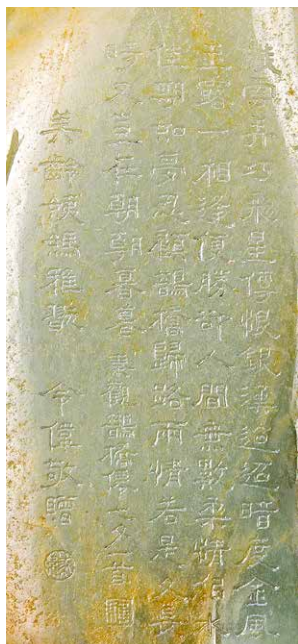 纖雲弄巧飛星傳恨銀漢迢迢暗度金風
玉露一相逢便勝卻人間無數柔情似水
佳期如夢忍顧鵲橋歸路兩情若是久長
時又豈在朝朝暮暮 秦觀鵲橋僊七夕一首
美齡姨媽雅 令 敬贈